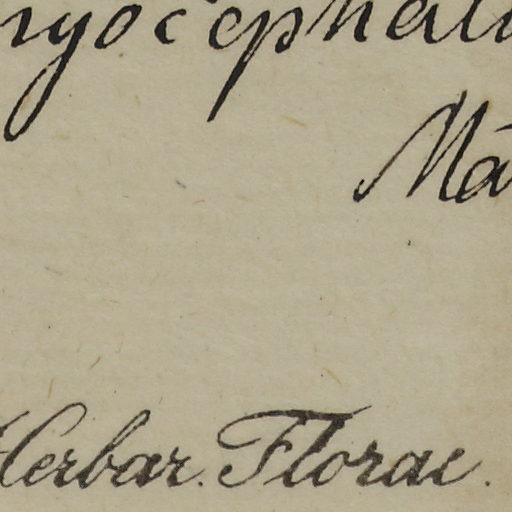 ryocephalu
Mä
Herbar. Florae.